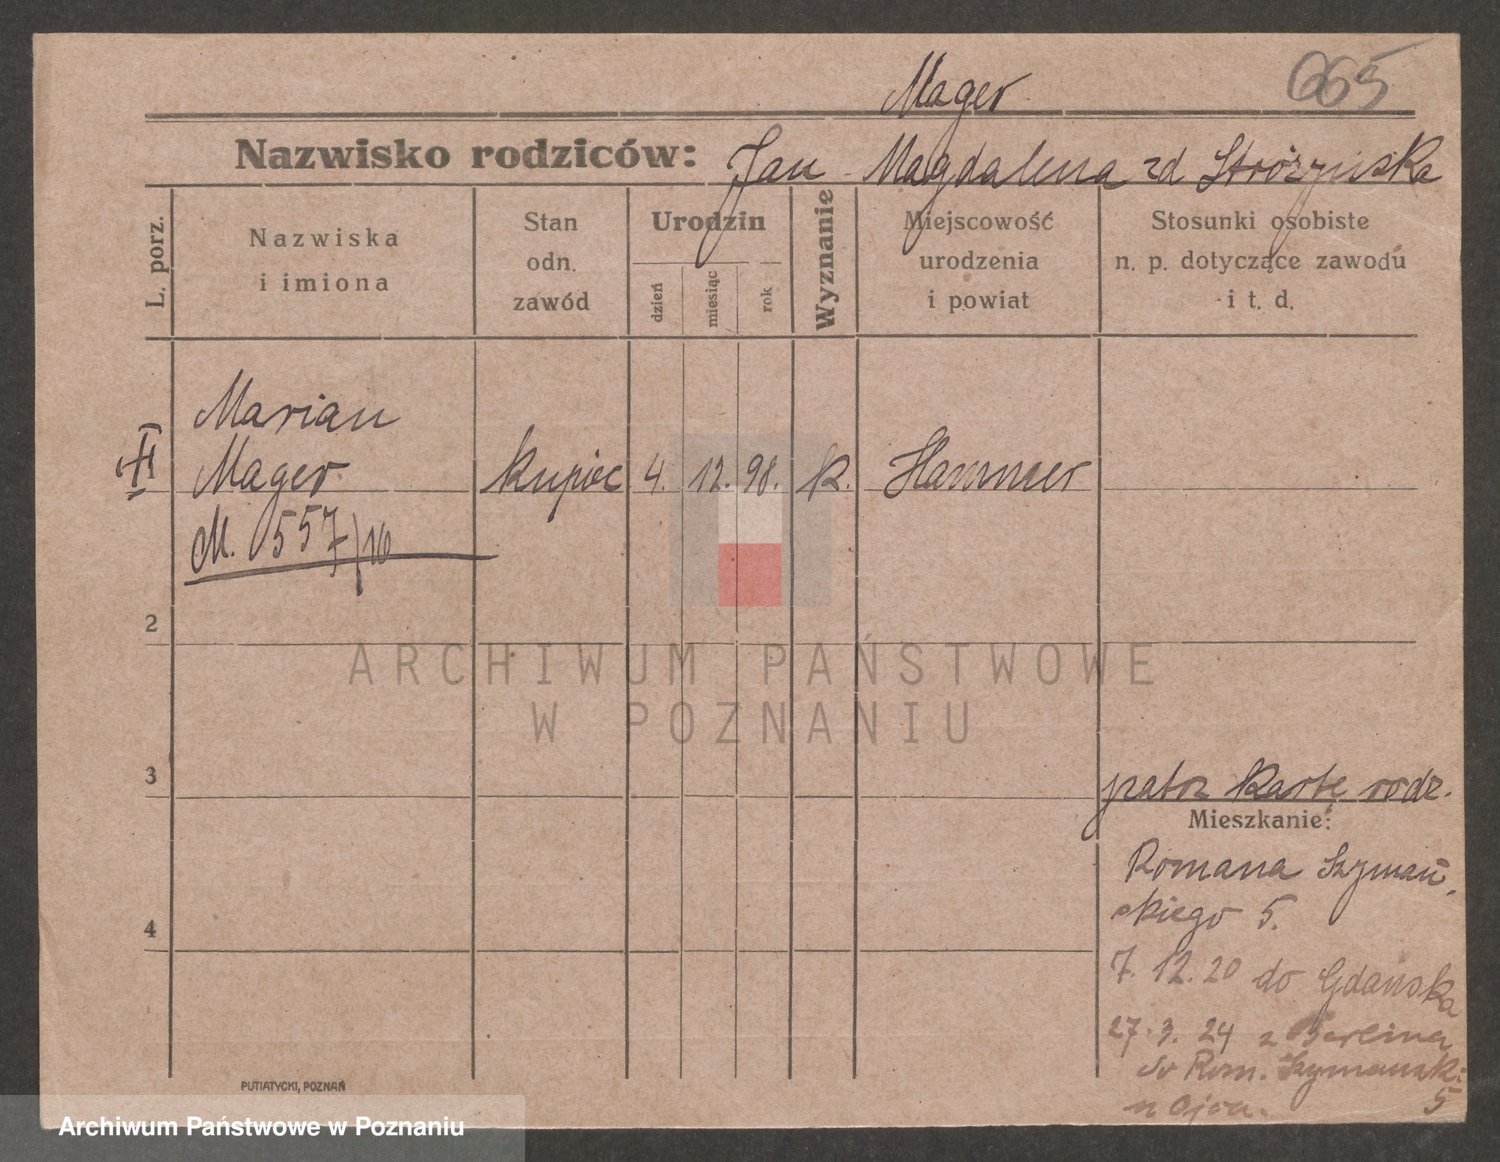 Mager 665
Nazwisko rodziców: Jan Magdalena zd Stróżyńska
L. porz.
Nazwiska
i imiona
Stan
odn.
zawód
Urodzin
dzień
miesiąc
rok
Wyznanie
Miejscowość
urodzenia
i powiat
Stosunki osobiste
n. p. dotyczące zawodu
i t. d.
Marian
Mager kupiec 4. 12. 98. k. Hammer
M. 557/16
2
ARCHIWUM PAŃSTWOWE
W POZNANIU
3
patrz kartę rodz.
Mieszkanie:
Romana Szymań-
skiego 5.
4
7. 12. 20 do Gdańska
27. 3. 24 z Berlina
Rom. Szymański
5
u Ojca.
PUTIATYCKI, POZNAŃ
Archiwum Państwowe w Poznaniu